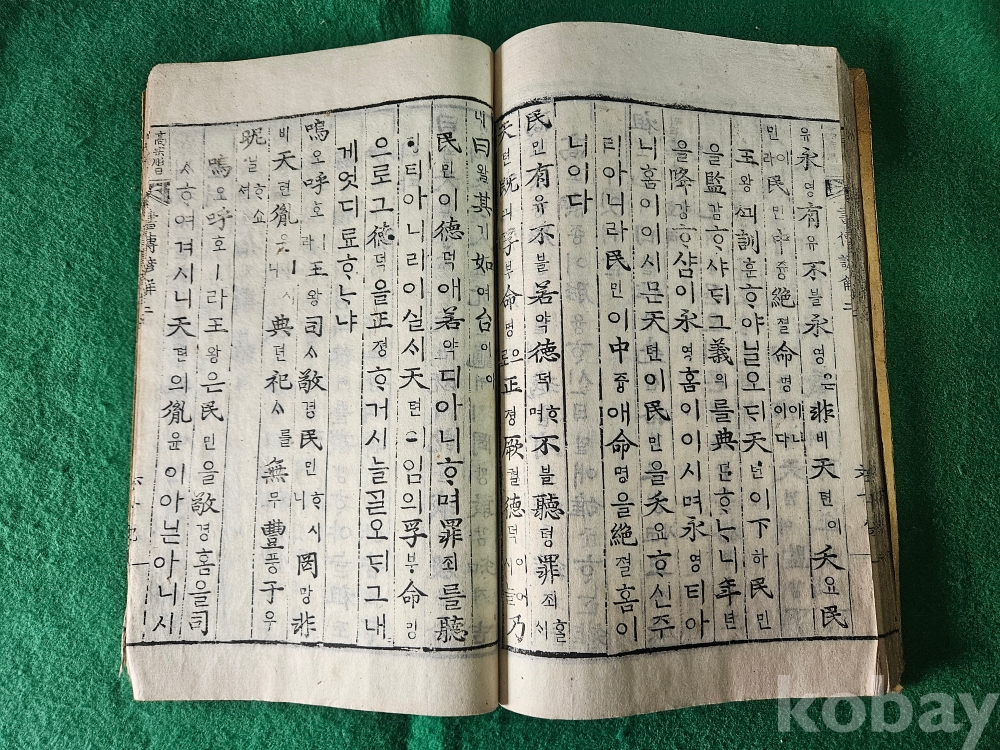 유永영有유不불永영은非비天텬이夭요民
민이라民민中듕絶졀命명이니이다
王왕ᄭᅴ訓훈ᄒᆞ야닐오ᄃᆡ天텬이下하民민
을監감ᄒᆞ샤ᄃᆡ그義의를典뎐ᄒᆞᄂᆞ니年년
을降강ᄒᆞ샴이永영홈이이시며永영티아
니홈이이시믄天텬이民민을夭요ᄒᆞ신주
리아니라民민이中듕애命명을絶졀홈이
니이다
民민有유不불若약德덕ᄒᆞ며不불聽텽罪죄ᄒᆞᆯ시
天텬旣긔孚부命명으로正졍厥궐德덕이어시늘乃
내曰왈其기如여台이
民민이德덕애若약디아니ᄒᆞ며罪죄를聽
텽티아니리이실ᄉᆡ天텬이임의孚부命명
으로그德덕을正졍ᄒᆞ거시늘ᄀᆞᆯ오ᄃᆡ그내
게엇디료ᄒᆞᄂᆞ냐
嗚오呼호ㅣ라王왕司ᄉᆞ敬경民민ᄒᆞ시니罔망非
비天텬胤윤이시니典뎐祀ᄉᆞ를無무豐풍于우
昵닐ᄒᆞ쇼셔
嗚오呼호ㅣ라王왕은民민을敬경홈을司
ᄉᆞᄒᆞ여겨시니天텬의胤윤이아닌아니시
書傳諺解二
六十九
kobay